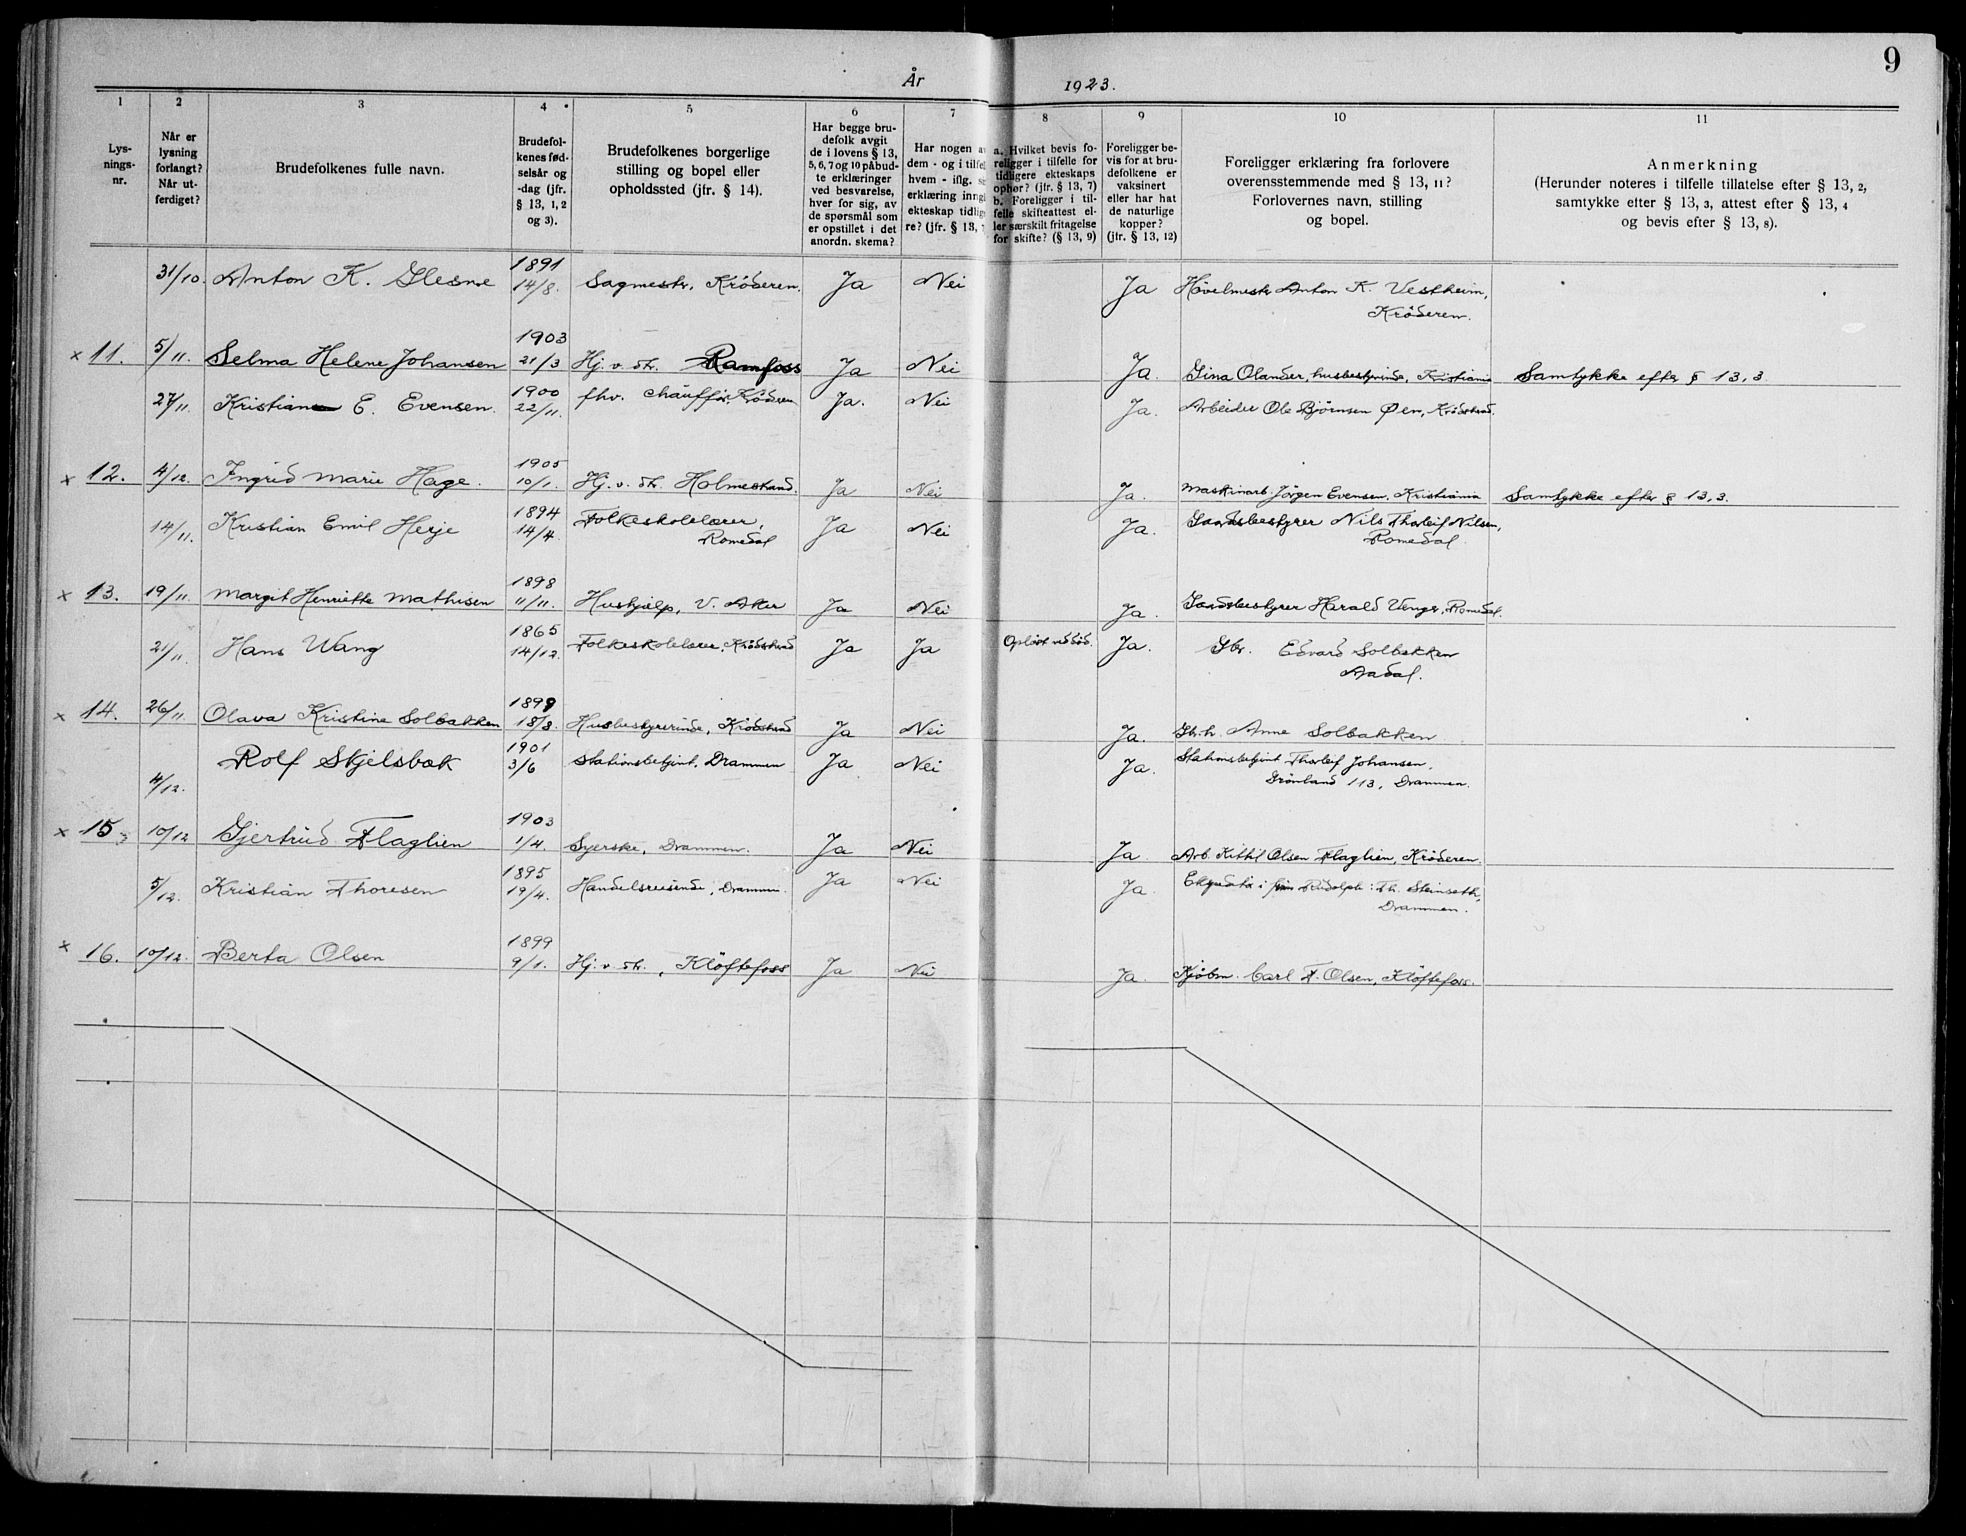 9
År 1923.
1 2 3 4 5 6 7 8 9 10 11
Lys-
nings-
nr.
Når er
lysning
forlangt?
Når ut-
ferdiget?
Brudefolkenes fulle navn.
Brudefol-
kenes fød-
selsår og
-dag (jfr.
§ 13, 1, 2
og 3).
Brudefolkenes borgerlige
stilling og bopel eller
opholdssted (jfr. § 14).
Har begge bru-
defolk avgit
de i lovens § 13,
5, 6, 7 og 10 påbud-
te erklæringer
ved besvarelse,
hver for sig, av
de spørsmål som
er opstillet i det
anordn. skema?
Har nogen a
dem - og i tilfel
hvem - iflg. s
erklæring inng
ekteskap tidlig
re? (jfr. § 13, 7
a. Hvilket bevis fo-
religger i tilfelle for
tidligere ekteskaps
ophør? (jfr. § 13, 7)
b. Foreligger i til-
felle skifteattest el-
ler særskilt fritagelse
for skifte? (§ 13, 9)
Foreligger be-
vis for at bru-
defolkene er
vaksinert
eller har hat
de naturlige
kopper?
(jfr. § 13, 12)
Foreligger erklæring fra forlovere
overensstemmende med § 13, 11?
Forlovernes navn, stilling
og bopel.
Anmerkning
(Herunder noteres i tilfelle tillatelse efter § 13, 2,
samtykke efter § 13, 3, attest efter § 13, 4
og bevis efter § 13, 8).
1891
31/10. Anton K. Glesne 14/8. Sagmestr, Krøderen. Ja Nei Ja Høvelmestr Anton K. Vestheim,
Krøderen.
1903
x 11. 5/11. Selma Helene Johansen 21/3 Hj. v. str. Ramfoss Ja Nei Ja. Lina Olander, husbestyrinde, Kristiania Samtykke efter § 13,3.
1900
27/11. Kristian E. Evensen. 22/11. fhv. chauffør, Krøderen Ja. Nei Ja. Arbeider Ole Bjørnsen Øen, Krødsherad.
1905
x 12. 4/12. Ingrid Marie Hage. 10/1. Hj. v. str. Holmestrand. Ja Nei Ja. Maskinarb. Jørgen Evensen, Kristiania Samtykke efter § 13,3.
1894
14/11. Kristian Emil Herje 14/4. Folkeskolelærer, Ja Nei Ja. Landsbestyrer Nils Thorleif Nilsen,
Romedal Romedal.
1898
x 13. 19/11. Margit Henriette Mathisen 11/11. Hushjælp, V. Aker Ja Nei Ja. Landsbestyrer Harald Venger, Romedal.
1865
21/11. Hans Wang 14/12. Folkeskolelærer, Krødsherad Ja Ja Opløst ved død. Ja. Gbr. Edvard Solbakken
Aadal.
1899
x 14. 26/11. Olava Kristine Solbakken 18/8. Husbestyrerinde, Krødsherad Ja Nei Ja. Gbr.h. Anne Solbakken
1901
Rolf Skjelsbæk 3/6 Stationsbetjent, Drammen Ja Nei Ja. Stationsbetjent Thorleif Johansen,
4/12. Grønland 113, Drammen.
1903
x 15. 10/12 Gjertrud Flaglien 1/4. Syerske, Drammen. Ja Nei Ja. Arb. Kittil Olsen Flaglien, Krøderen.
1895
5/12. Kristian Thoresen 19/4. Handelsreisende, Drammen. Ja Nei Ja. i Th. Steinseth,
Drammen.
1899
x 16. 10/12. Berta Olsen 9/1. Hj. v. str., Kløftefoss Ja Nei Ja. Kjøbm. Carl F. Olsen, Kløftefoss.